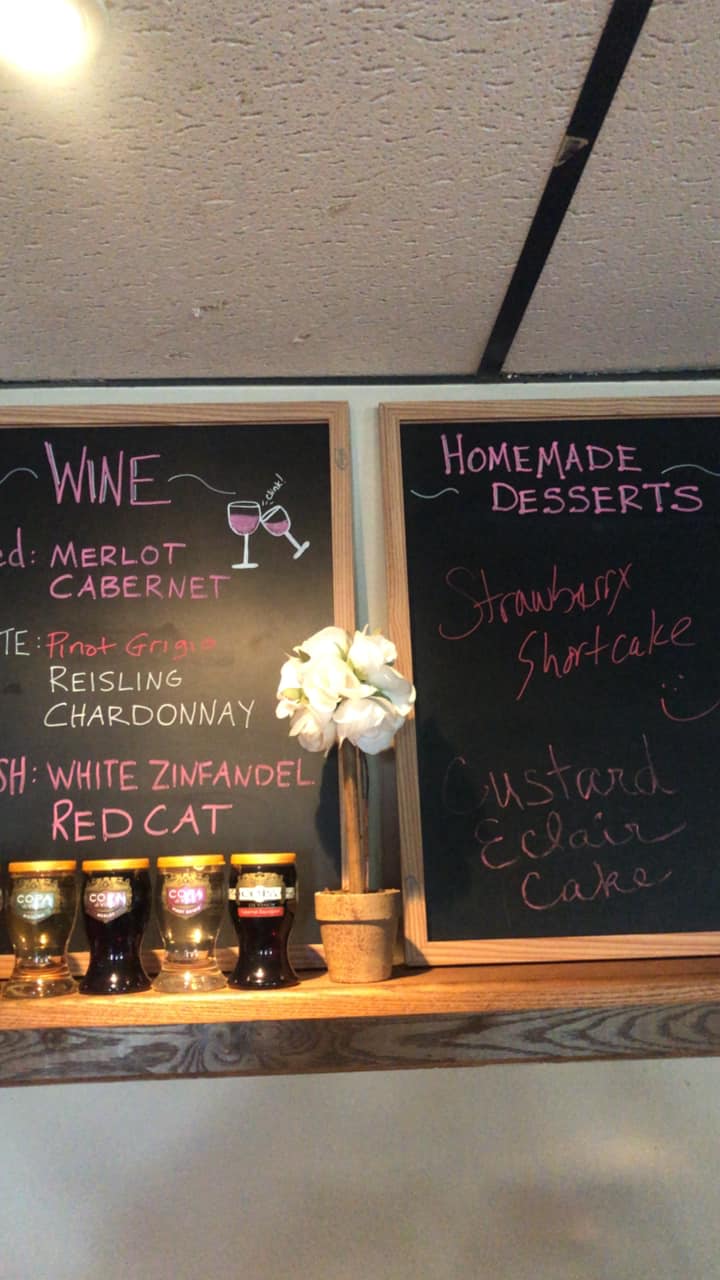 WINE
clink!
ed: MERLOT
CABERNET
TE: Pinot Grigio
REISLING
CHARDONNAY
SH: WHITE ZINFANDEL
RED CAT
HOMEMADE
DESSERTS
Strawberry
Shortcake
Custard
Eclair
Cake
COPA
COPA
COPA
COPA